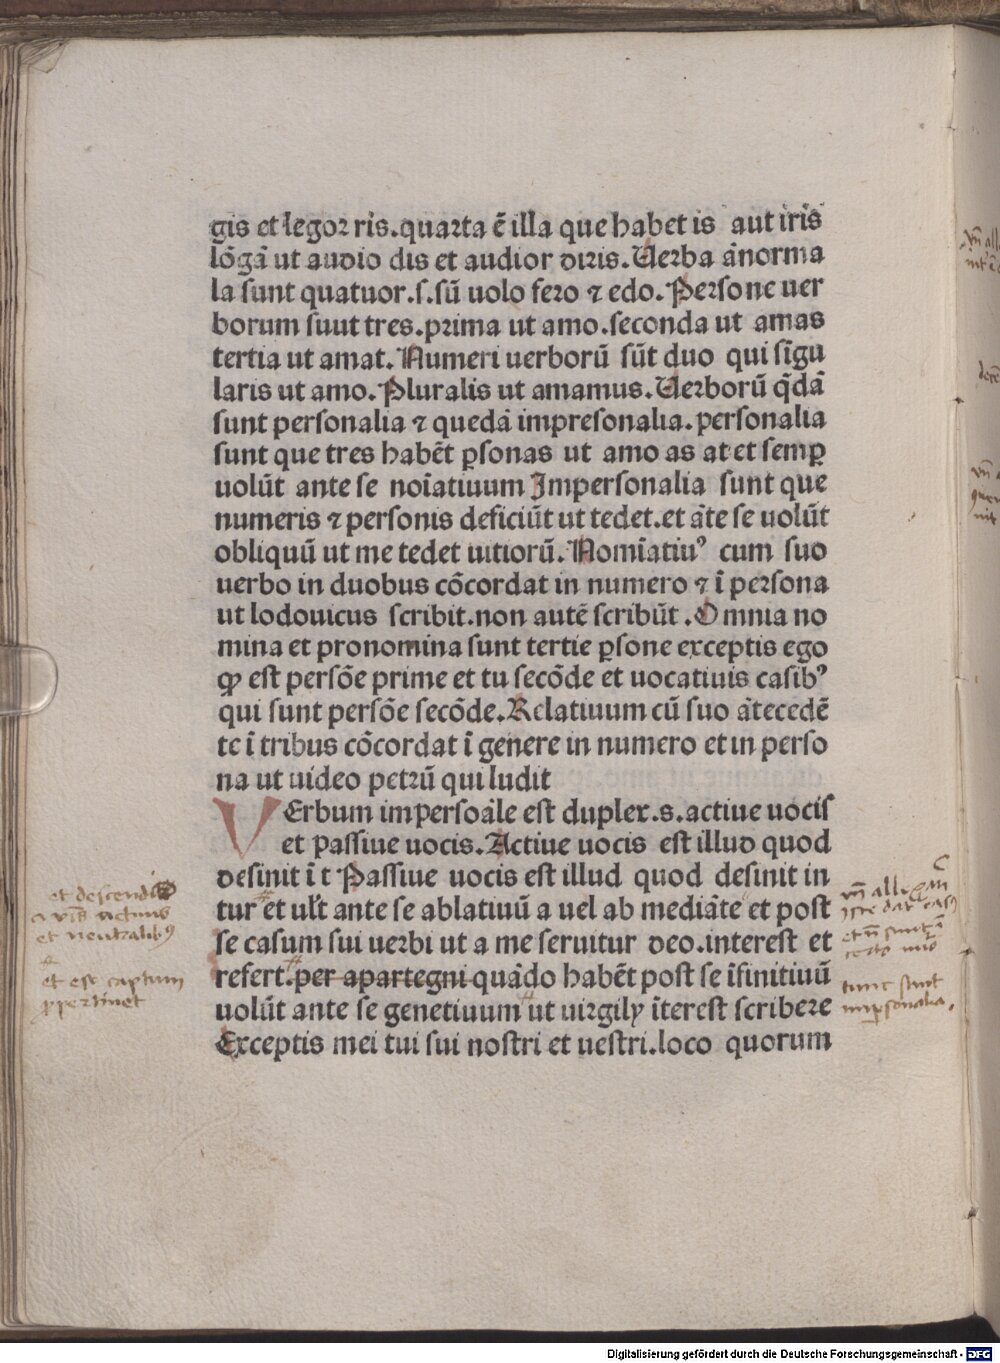 gis et legor ris.quarta ē illa que habet is aut iris
lōgā ut audio dis et audior diris.Uerba ānorma
la sunt quatuor.s.sū uolo fero ⁊ edo.Persone uer
borum suut tres.prima ut amo.seconda ut amas
tertia ut amat.Numeri uerborū sūt duo qui sīgu
laris ut amo.Pluralis ut amamus.Uerborū q̄dā
sunt personalia ⁊ quedā impresonalia.personalia
sunt que tres habēt ꝑsonas ut amo as at et semꝑ
uolūt ante se noīatiuum Impersonalia sunt que
numeris ⁊ personis deficiūt ut tedet.et āte se uolūt
obliquū ut me tedet uitiorū.Nomīatiuꝰ cum suo
uerbo in duobus cōcordat in numero ⁊ ī persona
ut lodouicus scribit.non autē scribūt.Omnia no
mina et pronomina sunt tertie ꝑsone exceptis ego
ꝙ est persōe prime et tu secōde et uocatiuis casibꝰ
qui sunt persōe secōde.Relatiuum cū suo ātecedē
te ī tribus cōcordat ī genere in numero et in perso
na ut uideo petrū qui ludit
VErbum impersoāle est duplex.s.actiue uocis
et passiue uocis.Actiue uocis est illud quod
desinit ī t Passiue uocis est illud quod desinit in
tur et ult ante se ablatiuū a uel ab mediāte et post
se casum sui uerbi ut a me seruitur deo.interest et
refert.per apartegni quādo habēt post se īfinitiuū
uolūt ante se genetiuum ut uirgily īterest scribere
Exceptis mei tui sui nostri et uestri.loco quorum
et neutralibꝰ
et est captum
ꝓ pertinet
tunc sunt
imꝑsonalia.
Digitalisierung gefördert durch die Deutsche Forschungsgemeinschaft - DFG